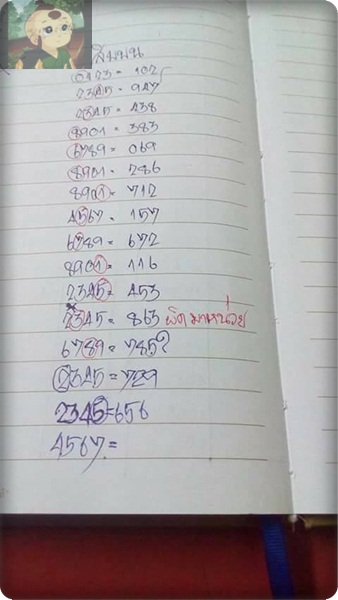 สิบบน
0123 = 102
2345 = 947
2345 = 438
8901 = 383
6789 = 069
8901 = 286
8901 = 712
4567 = 157
6789 = 672
8901 = 116
2345 = 453
2345 = 863 ผิดมาหน่วย
6789 = 785?
2345 = 729
2345 = 656
4567 =